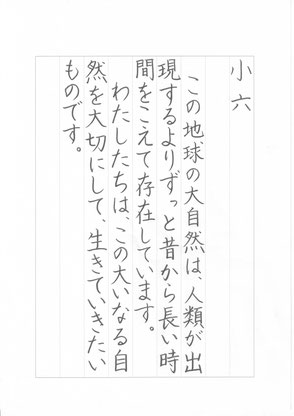 小六
この地球の大自然は、人類が出
現するよりずっと昔から長い時
間をこえて存在しています。
わたしたちは、この大いなる自
然を大切にして、生きていきたい
ものです。